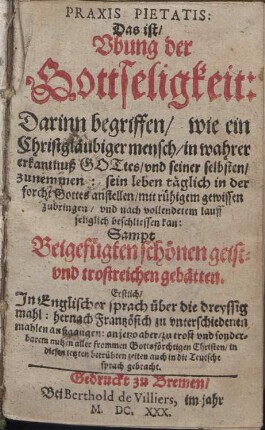 PRAXIS PIETATIS:
Das ist/
Vbung der
Gottseligkeit:
Darinn begriffen/ wie ein
Christglaubiger mensch/ in wahrer
erkantnuß GOttes/ vnd seiner selbsten/
zunemmen: sein leben täglich in der
forcht Gottes anstellen/ mit rühigem gewissen
zubringen/ vnd nach vollendetem lauff
seliglich beschliessen kan:
Sampt
Beigefügten schönen geist-
vnd trostreichen gebätten.
Erstlich/
In Englischer sprach über die dreyssig
mahl: hernach Französich zu vnterschiedenen
mahlen außgangen: an jetzo aber/ zu trost vnd sonder-
barem nutzen aller frommen Gottsförchtigen Christen/ in
diesen letzten betrübten zeiten auch in die Teutsche
sprach gebracht.
Gedruckt zu Bremen/
Bei Berthold de Villiers, im jahr
M. DC. XXX.